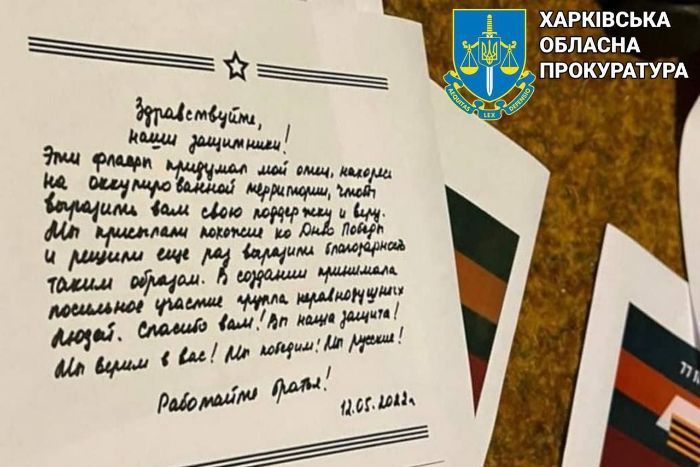 ХАРКІВСЬКА
ОБЛАСНА
ПРОКУРАТУРА
AEQUITAS LEX DEFENSIO
Здравствуйте,
наши защитники!
Эти флаеры придумал мой отец, находясь
на оккупированной территории, чтобы
выразить вам свою поддержку и веру.
Мы присылали похожие ко Дню Победы
и решили еще раз выразить благодарность
таким образом. В создании принимала
посильное участие группа неравнодушных
людей. Спасибо вам! Вы наша защита!
Мы верим в вас! Мы победим! Мы русские!
Работайте братья!
12.05.2022г
77